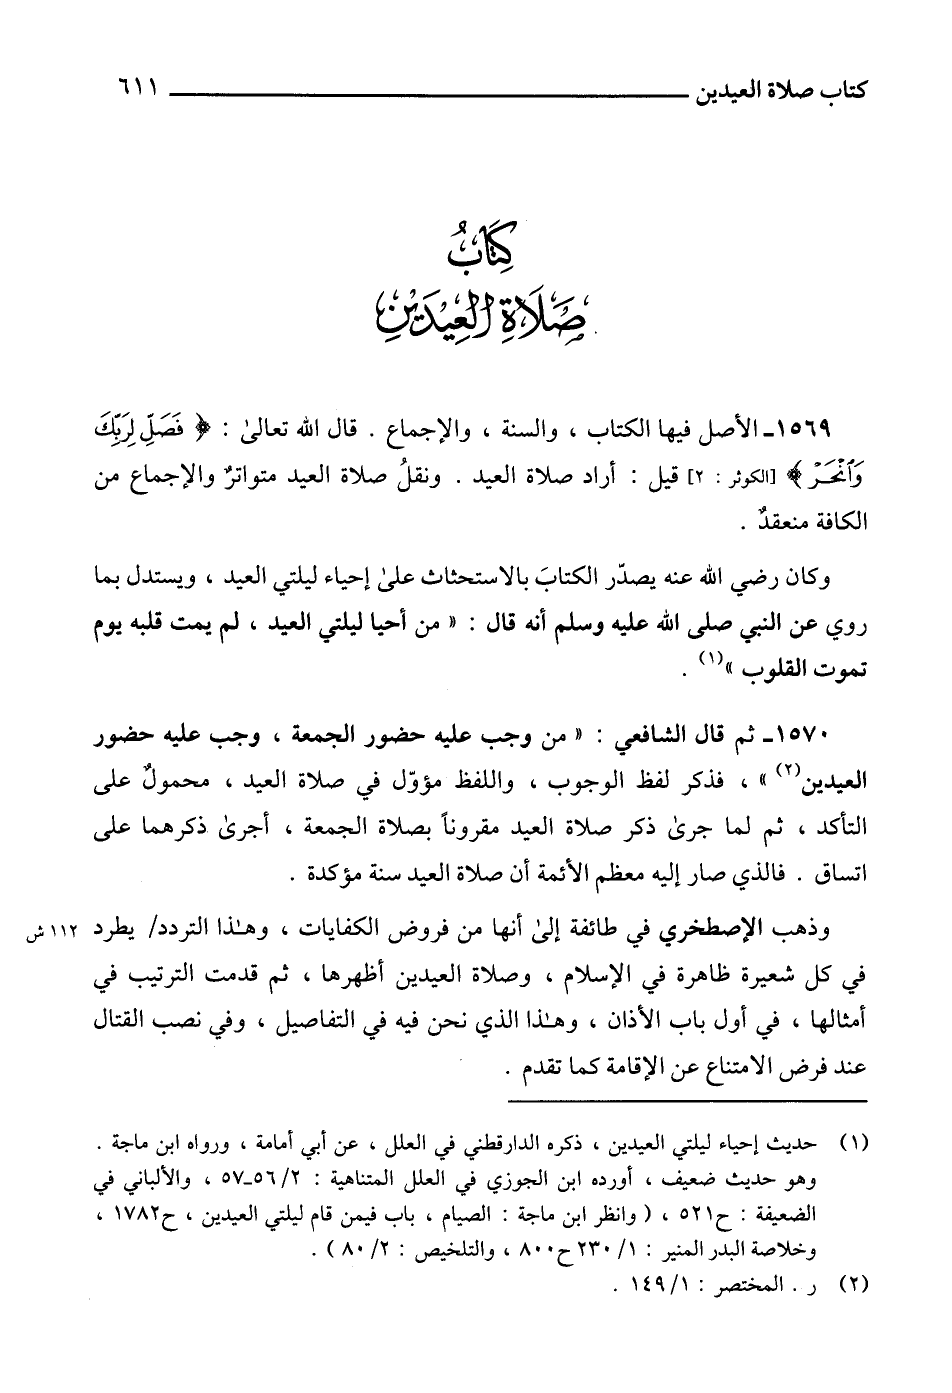 كتاب صلاة العيدين ــــــــــــــــ ٦١١
كِتَابُ
صَلَاةِ العِيدَيْنِ
١٥٦٩ـ الأصل فيها الكتاب ، والسنة ، والإجماع . قال الله تعالىٰ : ﴿ فَصَلِّ لِرَبِّكَ
وَٱنْحَرْ ﴾ [الكوثر : ٢] قيل : أراد صلاة العيد . ونقلُ صلاة العيد متواترٌ والإجماع من
الكافة منعقدٌ .
وكان رضي الله عنه يصدّر الكتابَ بالاستحثاث علىٰ إحياء ليلتي العيد ، ويستدل بما
روي عن النبي صلى الله عليه وسلم أنه قال : « من أحيا ليلتي العيد ، لم يمت قلبه يوم
تموت القلوب »(١) .
١٥٧٠ـ ثم قال الشافعي : « من وجب عليه حضور الجمعة ، وجب عليه حضور
العيدين(٢) » ، فذكر لفظ الوجوب ، واللفظ مؤوّل في صلاة العيد ، محمولٌ على
التأكد ، ثم لما جرىٰ ذكر صلاة العيد مقروناً بصلاة الجمعة ، أجرىٰ ذكرهما على
اتساق . فالذي صار إليه معظم الأئمة أن صلاة العيد سنة مؤكدة .
وذهب الإصطخري في طائفة إلىٰ أنها من فروض الكفايات ، وهـٰذا التردد/ يطرد ١١٢ ش
في كل شعيرة ظاهرة في الإسلام ، وصلاة العيدين أظهرها ، ثم قدمت الترتيب في
أمثالها ، في أول باب الأذان ، وهـٰذا الذي نحن فيه في التفاصيل ، وفي نصب القتال
عند فرض الامتناع عن الإقامة كما تقدم .
(١) حديث إحياء ليلتي العيدين ، ذكره الدارقطني في العلل ، عن أبي أمامة ، ورواه ابن ماجة .
وهو حديث ضعيف ، أورده ابن الجوزي في العلل المتناهية : ٢/ ٥٦ـ٥٧ ، والألباني في
الضعيفة : ح٥٢١ ، ( وانظر ابن ماجة : الصيام ، باب فيمن قام ليلتي العيدين ، ح١٧٨٢ ،
وخلاصة البدر المنير : ١/ ٢٣٠ ح٨٠٠ ، والتلخيص : ٢/ ٨٠ ) .
(٢) ر . المختصر : ١/ ١٤٩ .